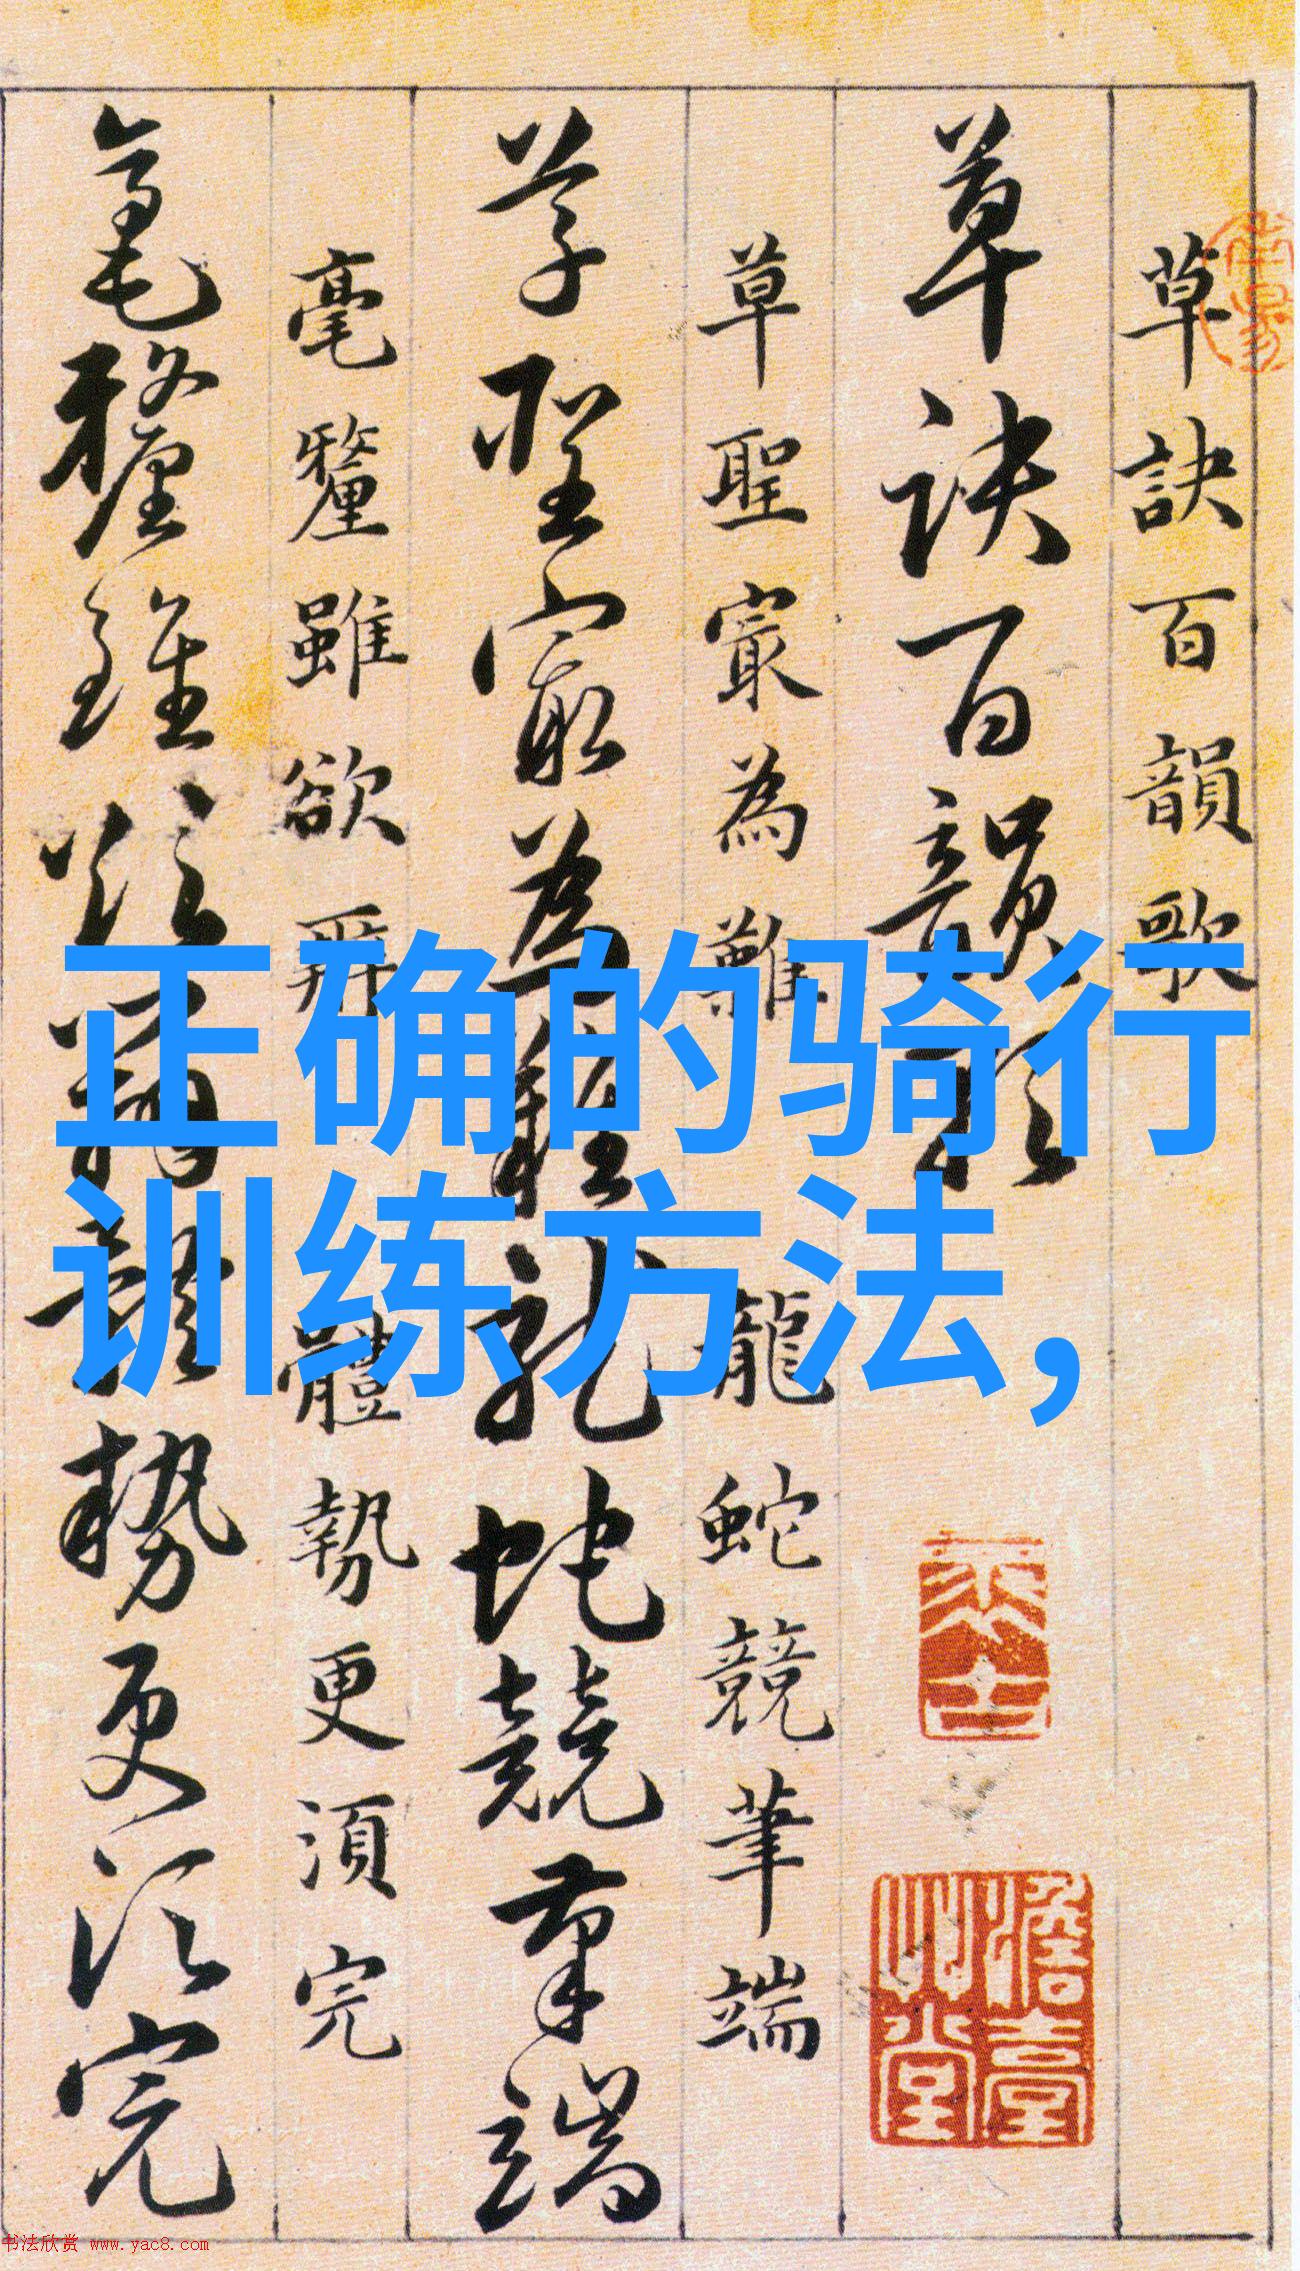 草訣百韻歌
草訣百韻歌
草聖最為難 龍蛇競筆端
草聖最為難龍蛇競筆端
毫釐雖欲辨 體勢更須完
毫釐雖欲辨體勢更須完
正确的骑行
训练方法,
书法欣赏 www.yac8.com